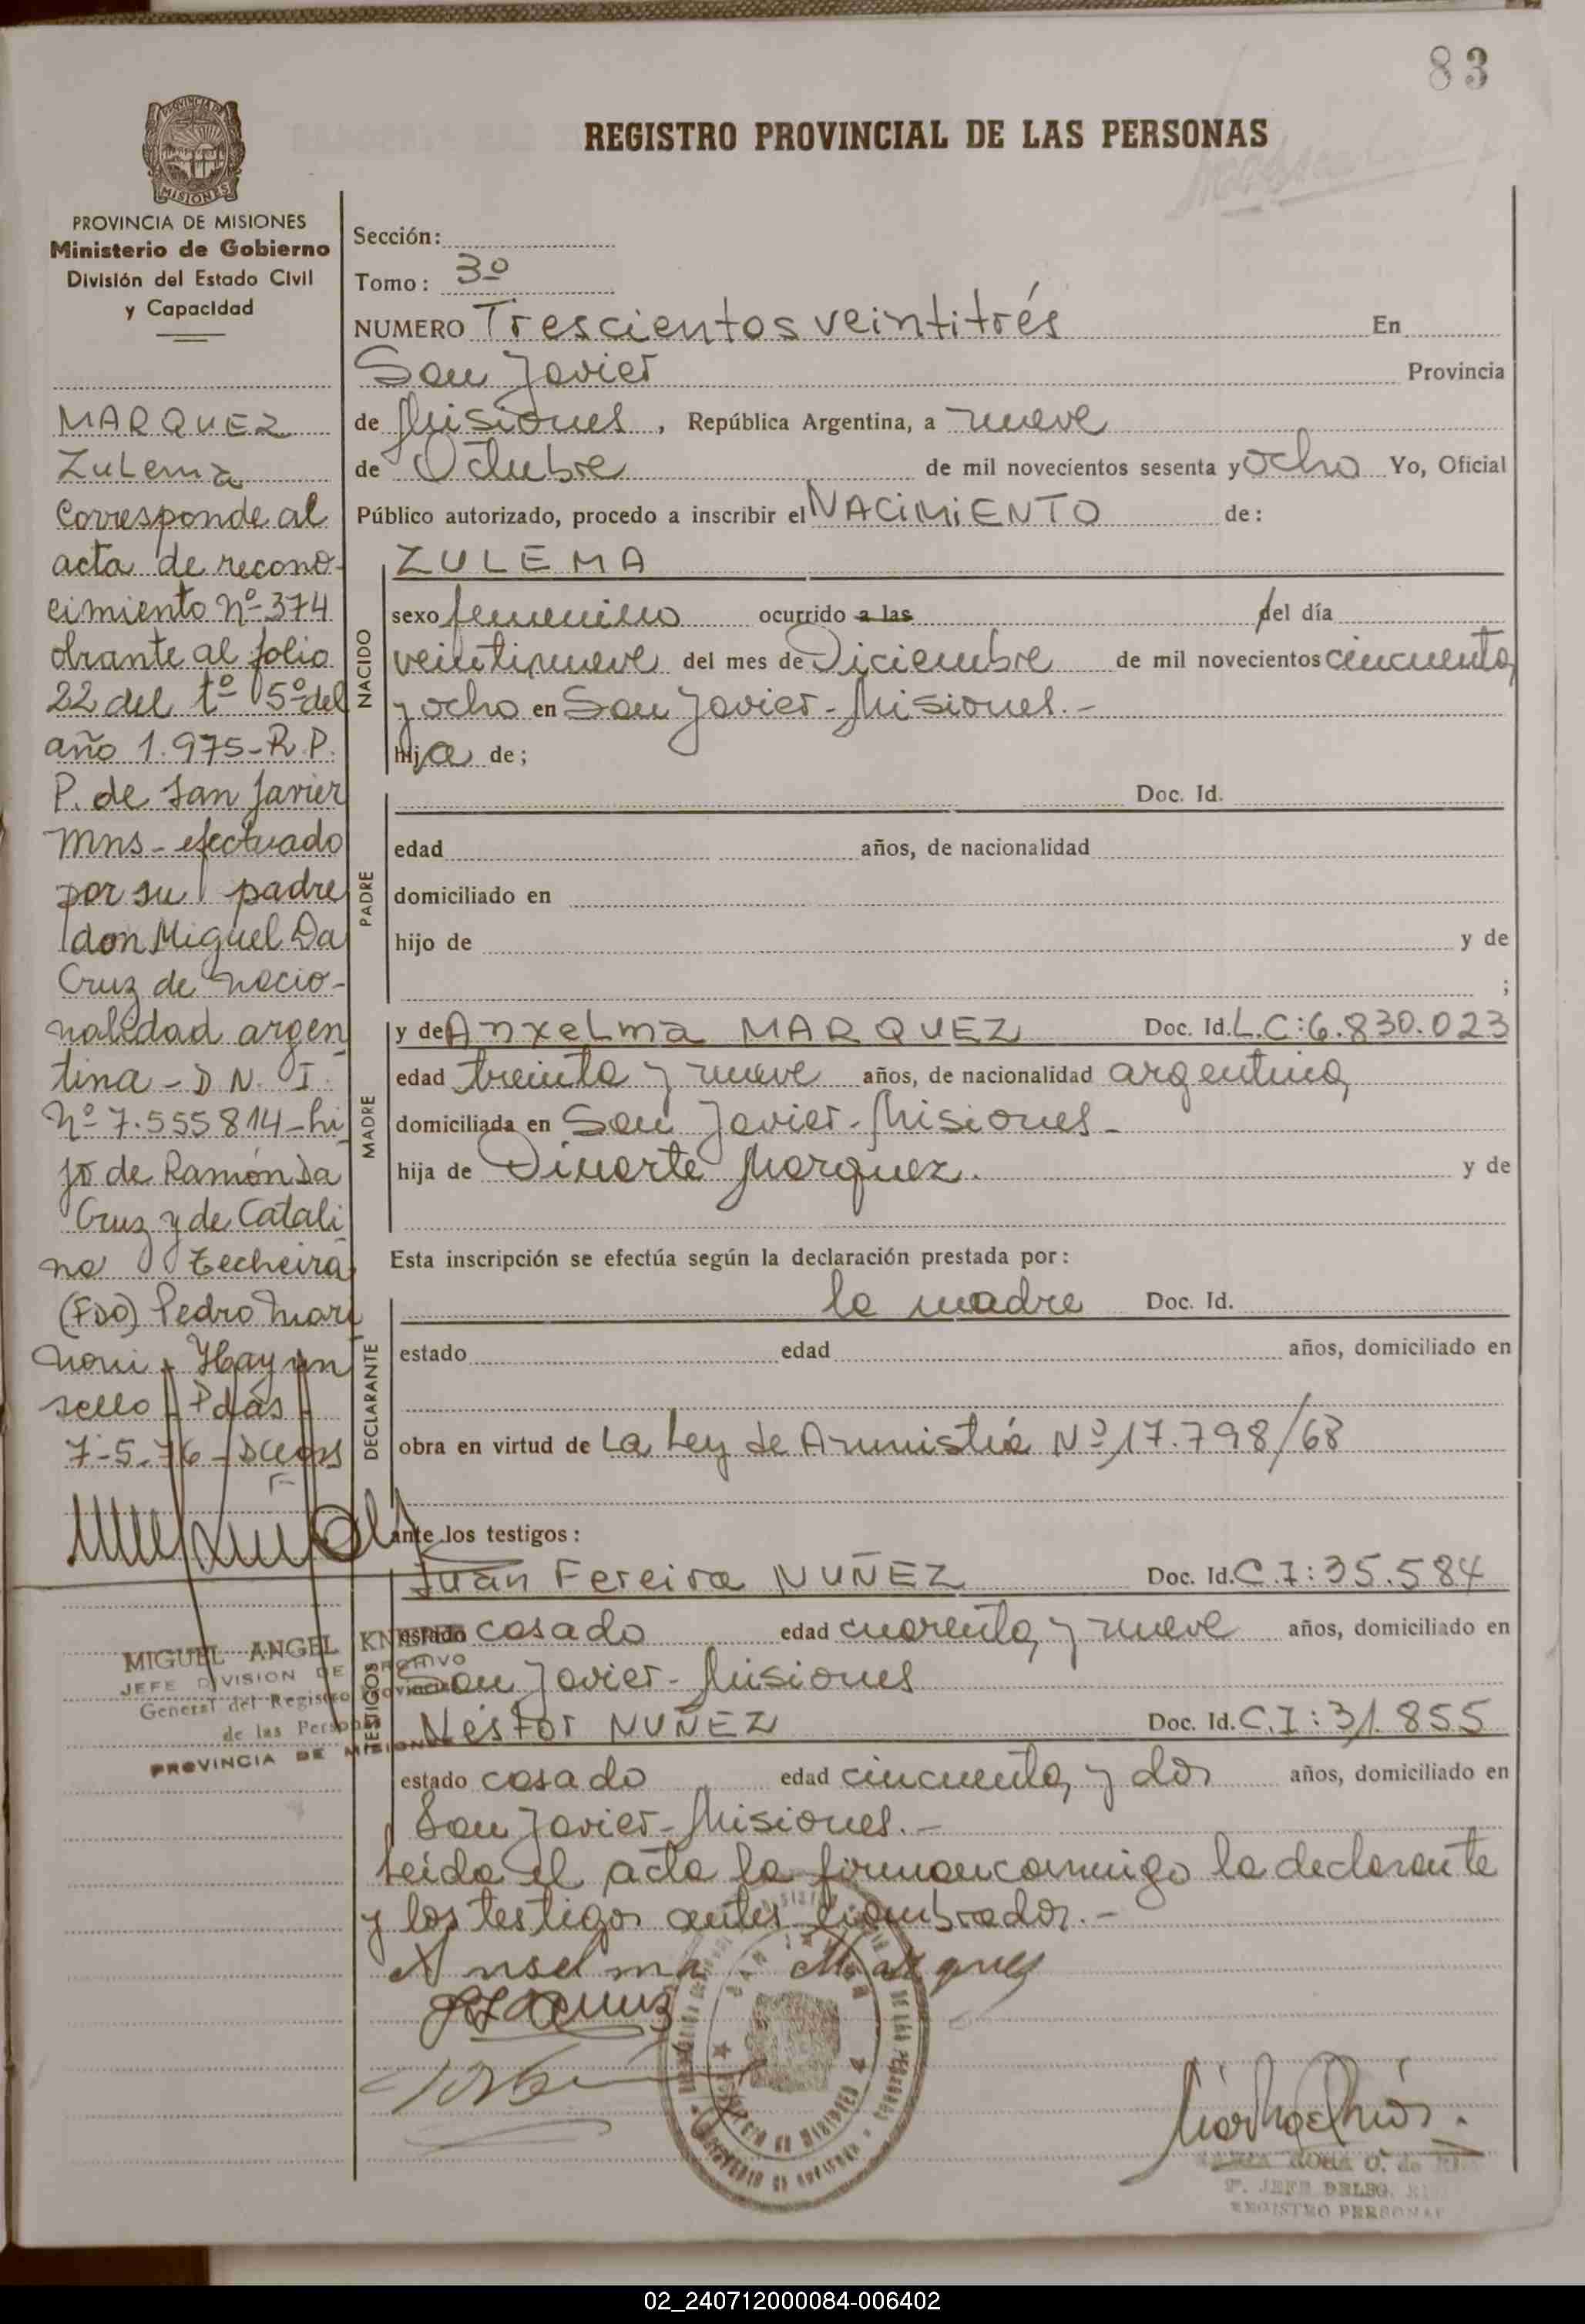 83
REGISTRO PROVINCIAL DE LAS PERSONAS
PROVINCIA DE MISIONES
Ministerio de Gobierno
División del Estado Civil
y Capacidad
MARQUEZ
Zulema
Corresponde al
acta de recono-
cimiento Nº 374
obrante al folio
22 del tº 5º del
año 1.975-R.P.
P. de San Javier
Mns - efectuado
por su padre
don Miguel Da
Cruz de nacio-
nalidad argen
tina - D.N.I.
Nº 7.555814-hi
jo de Ramón Da
Cruz y de Catali
na Techeira
(FDO) Pedro Mari
noni - Hay un
sello - Pdas
7-5-76
MIGUEL ANGEL
JEFE DIVISION DE ARCHIVO
General del Registro Provincial
de las Personas
PROVINCIA DE MISIONES
Sección:
Tomo: 3º
NUMERO Trescientos veintitrés En
San Javier Provincia
de Misiones, República Argentina, a nueve
de Octubre de mil novecientos sesenta y ocho Yo, Oficial
Público autorizado, procedo a inscribir el NACIMIENTO de:
NACIDO
ZULEMA
sexo femenino ocurrido a las del día
veintinueve del mes de Diciembre de mil novecientos cincuenta
y ocho en San Javier-Misiones.-
hija de;
PADRE
Doc. Id.
edad años, de nacionalidad
domiciliado en
hijo de y de
;
MADRE
y de Anxelma MARQUEZ Doc. Id. L.C:6.830.023
edad treinta y nueve años, de nacionalidad argentina
domiciliada en San Javier-Misiones-
hija de Dinarte Marquez. y de
Esta inscripción se efectúa según la declaración prestada por:
DECLARANTE
la madre Doc. Id.
estado edad años, domiciliado en
obra en virtud de La Ley de Amnistía Nº 17.798/68
ante los testigos:
TESTIGOS
Juan Fereira NUÑEZ Doc. Id. C.I:35.584
estado casado edad cuarenta y nueve años, domiciliado en
San Javier-Misiones
Nestor NUÑEZ Doc. Id. C.I:31.855
estado casado edad cincuenta y dos años, domiciliado en
San Javier-Misiones.-
Leída el acta la firman conmigo la declarante
y los testigos antes nombrados.-
Anselma Marques
SAN JAVIER
PROVINCIA DE MISIONES
Pº. JEFE DELEG.
REGISTRO PERSONAS
02_240712000084-006402